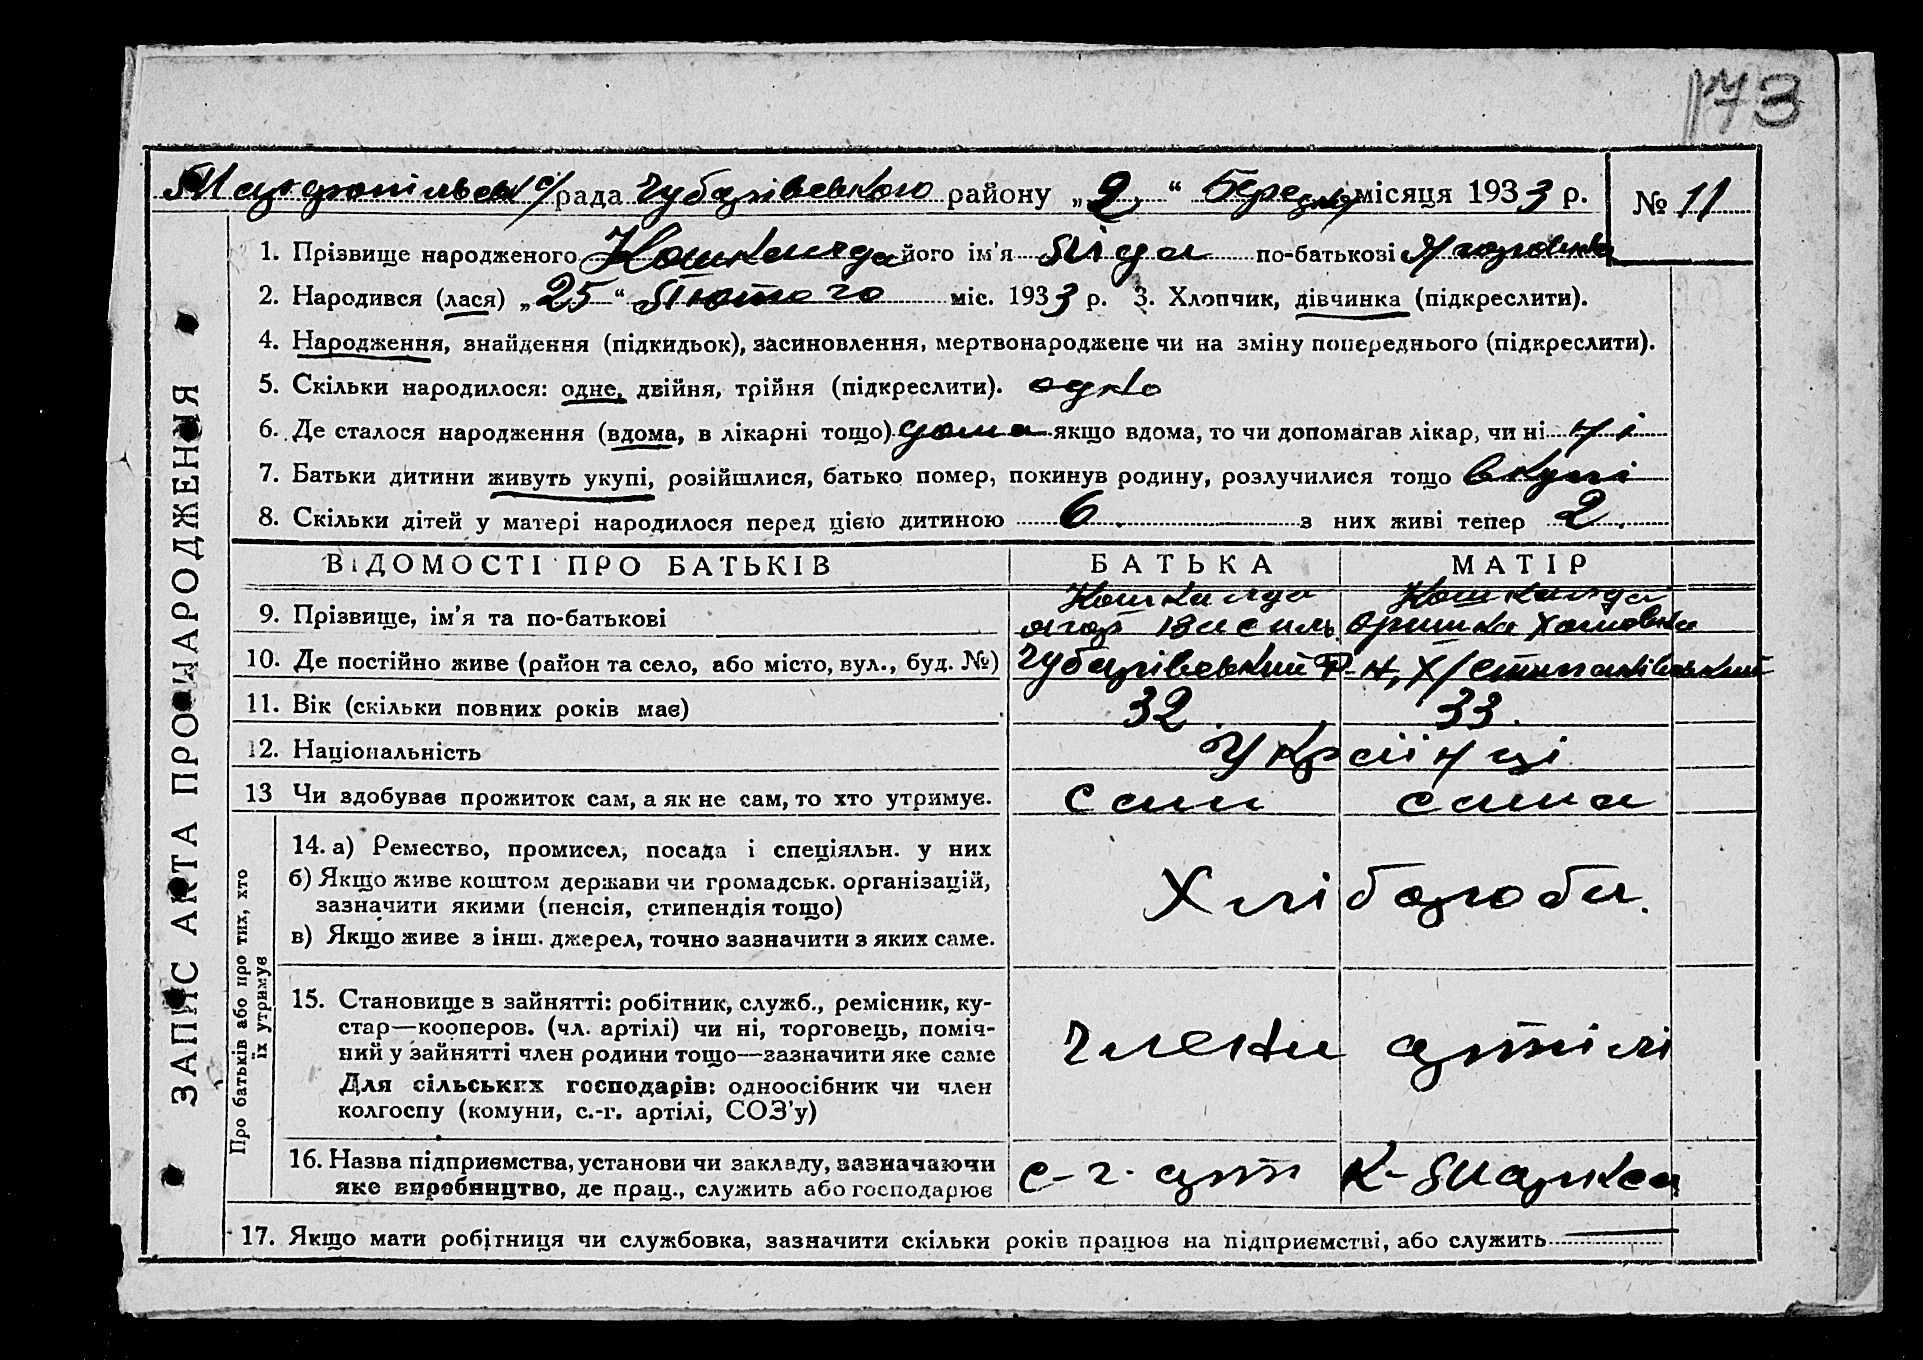 173
Марфопільськ с/рада Чубарівського району „2“ Березня місяця 1933 р. № 11
1. Прізвище народженого Кошкалда його ім'я Ліда по-батькові Ягоровна
2. Народився (лася) „25“ Лютого міс. 1933 р. 3. Хлопчик, дівчинка (підкреслити).
4. Народження, знайдення (підкидьок), засиновлення, мертвонароджене чи на зміну попереднього (підкреслити).
5. Скільки народилося: одне, двійня, трійня (підкреслити). одно
6. Де сталося народження (вдома, в лікарні тощо) дома якщо вдома, то чи допомагав лікар, чи ні ні
7. Батьки дитини живуть укупі, розійшлися, батько помер, покинув родину, розлучилися тощо вкупі
8. Скільки дітей у матері народилося перед цією дитиною 6 з них живі тепер 2
ВІДОМОСТІ ПРО БАТЬКІВ БАТЬКА МАТІР
Кошкалда Кошкалда
9. Прізвище, ім'я та по-батькові Ягор Василь Оришка Хомовна
10. Де постійно живе (район та село, або місто, вул., буд. №) Чубарівський Р-н, Х/
11. Вік (скільки повних років має) 32 33.
12. Національність Українці
13 Чи здобуває прожиток сам, а як не сам, то хто утримує. Сам сама
14. а) Ремество, промисел, посада і спеціяльн. у них
б) Якщо живе коштом держави чи громадськ. організацій,
зазначити якими (пенсія, стипендія тощо) Хлібороби.
в) Якщо живе з інш. джерел, точно зазначити з яких саме.
15. Становище в зайнятті: робітник, служб., ремісник, ку-
стар—кооперов. (чл. артілі) чи ні, торговець, поміч-
ний у зайнятті член родини тощо—зазначити яке саме Члени артілі
Для сільських господарів: одноосібник чи член
колгоспу (комуни, с.-г. артілі, СОЗ'у)
16. Назва підприємства, установи чи закладу, зазначаючи
яке виробництво, де прац., служить або господарює с-г. арт К-Маркса
17. Якщо мати робітниця чи службовка, зазначити скільки років працює на підприємстві, або служить
ЗАПИС АКТА ПРО НАРОДЖЕННЯ
Про батьків або про тих, хто
їх утримує